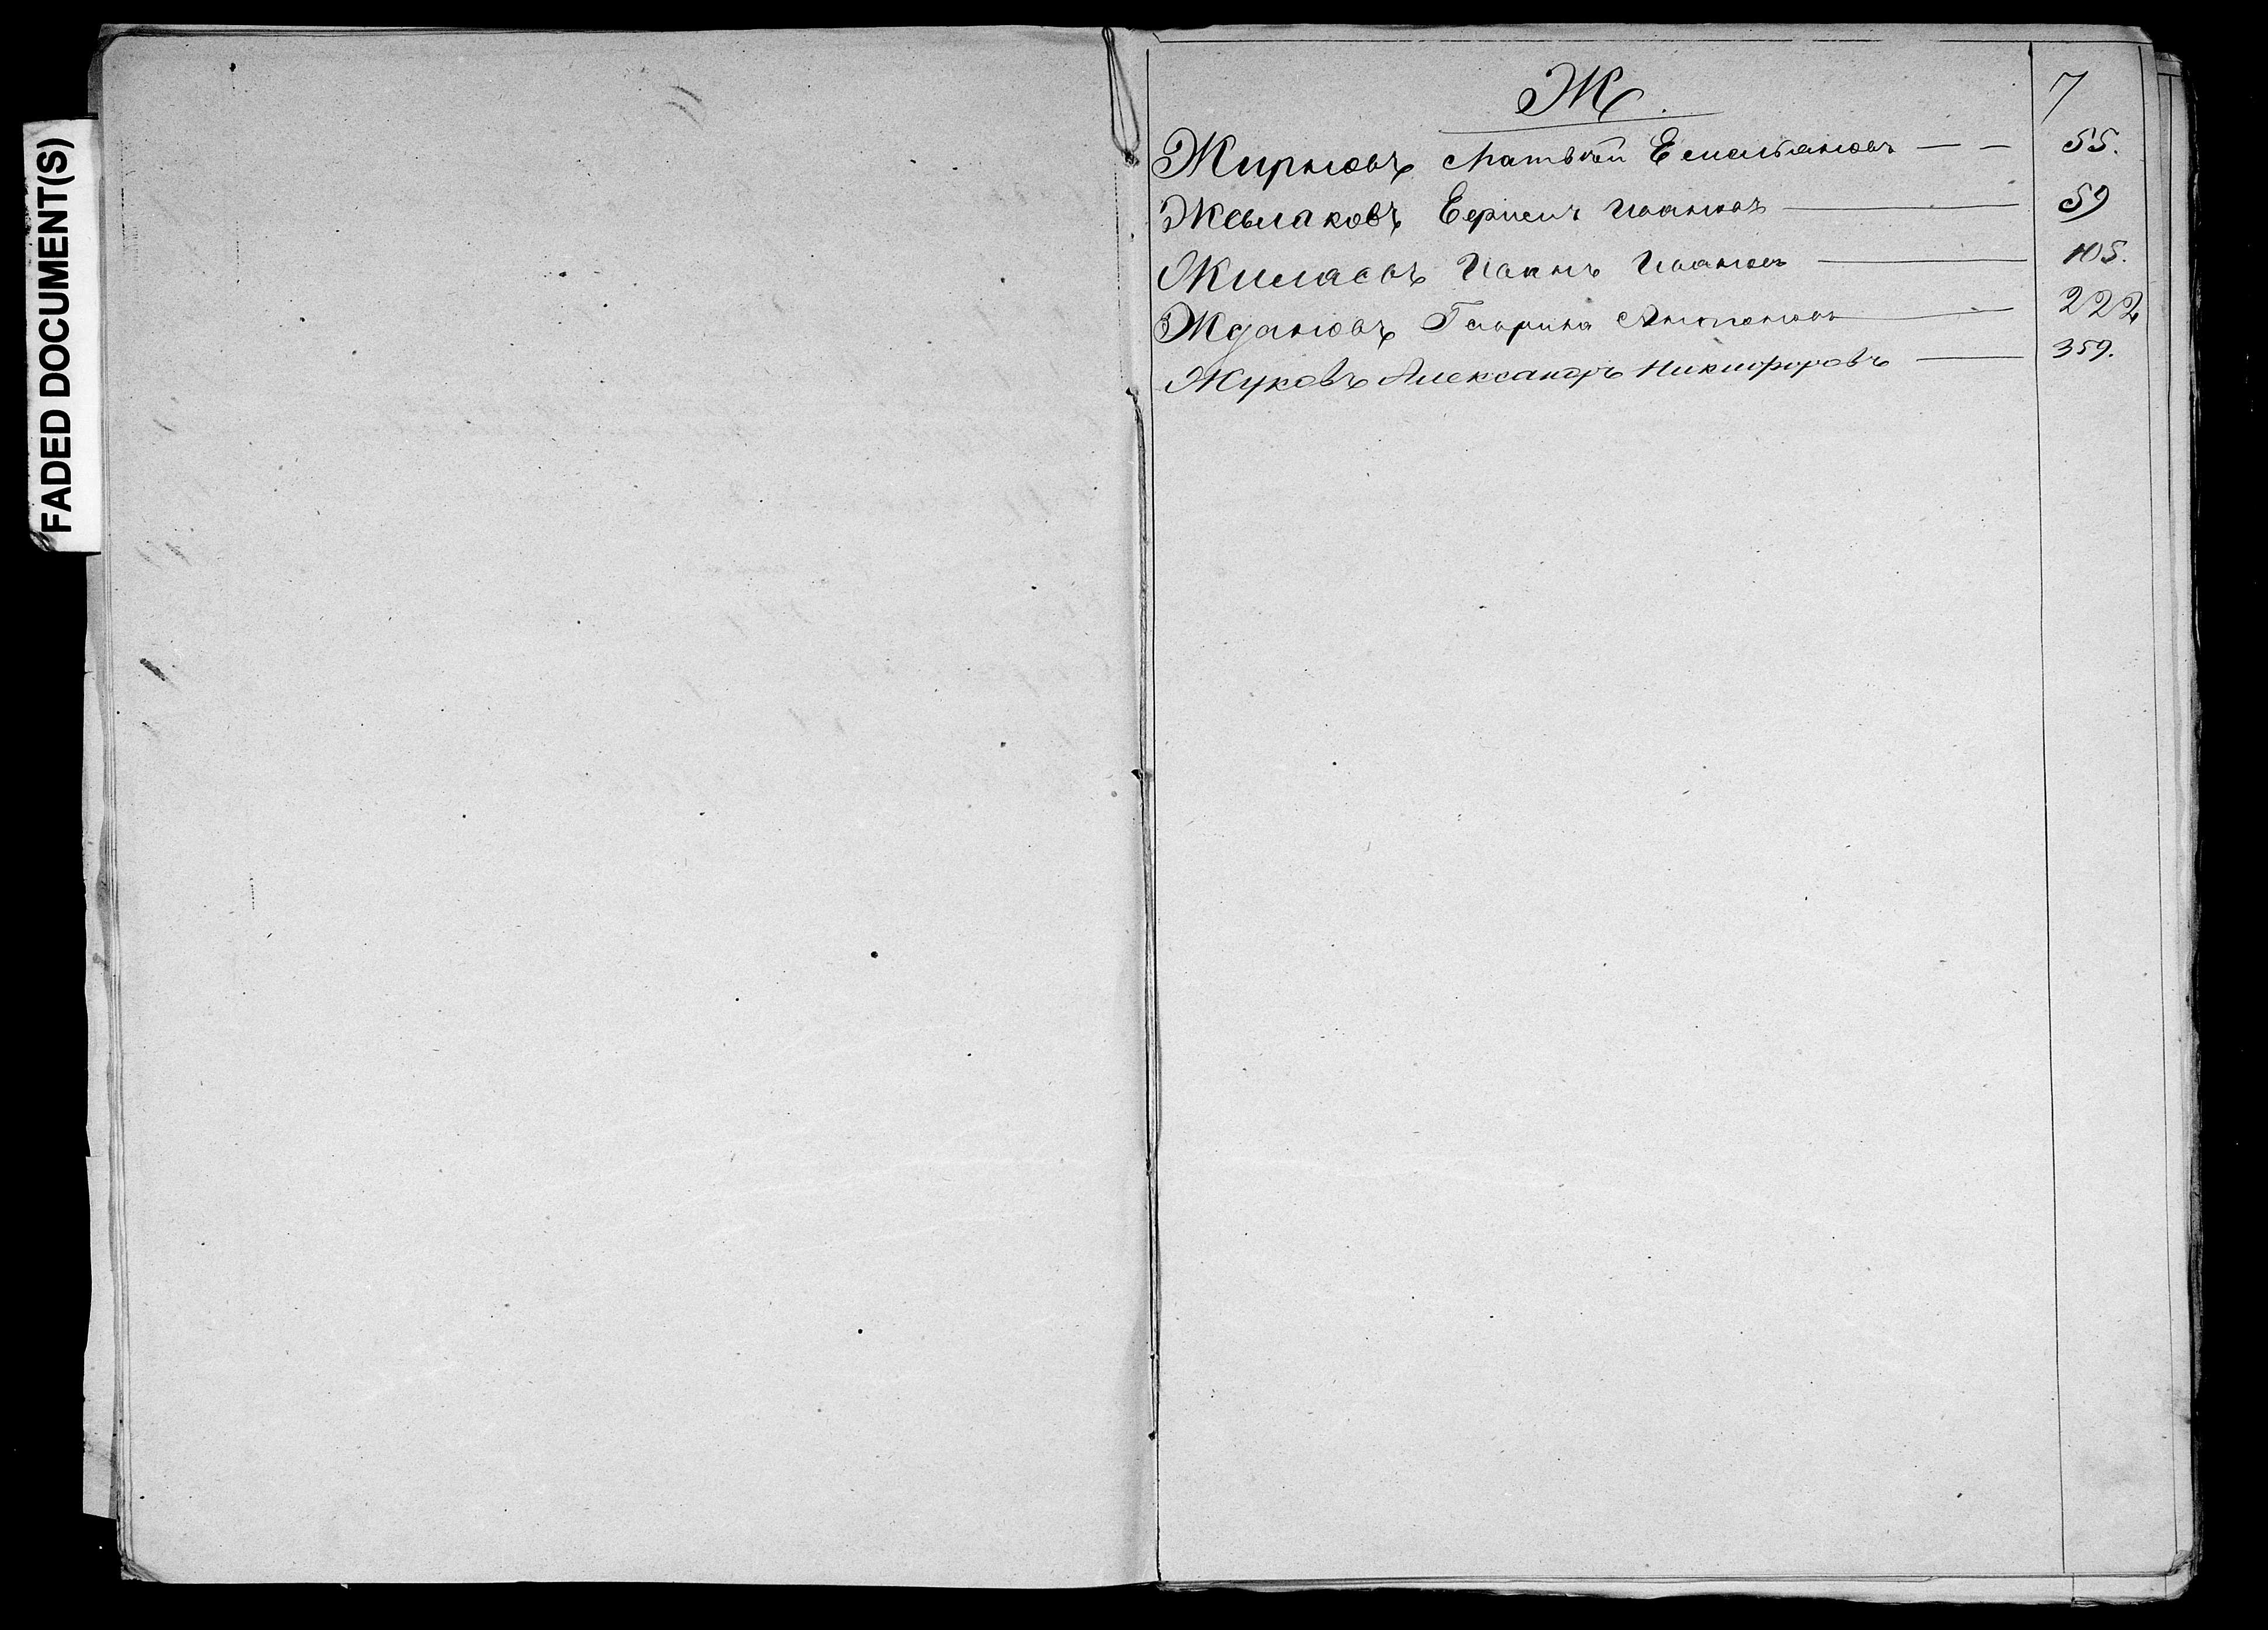 FADED DOCUMENT(S)
Ж.
7
Жирновъ Матвѣй Емельяновъ — — 55.
Жевлаковъ Ермилъ Ивановъ — 59
Жиласовъ Иванъ Ивановъ — 105.
Ждановъ Гаврила Антоновъ — 222
Жуковъ Александръ Никифоровъ — 359.